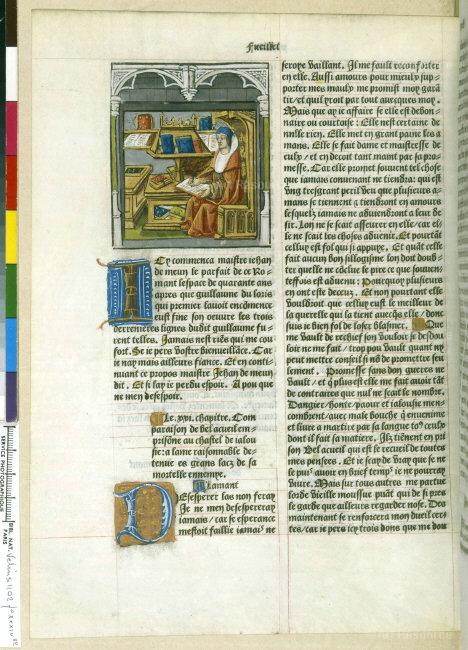 Fueillet
Cy commenca maistre iehan
de meun le parfait de ce Ro-
mant lespace de quarante ans
apres que guillaume du loris
qui premier lauoit encõmence
eust fine son oeuure les trois
derrenieres lignes dudit guillaume fu-
rent telles. Jamais nest riẽs qui me cõ-
fort. Se ie pers vostre bienueillãce. Car
ie nay mais ailleurs fiance. Et en conti-
nuant ce propos maistre Jehan de meun
dit. Et si lay ie perdu espoir. A pou que
ne men desespoir.
Le .xxi. chapitre. Com-
paraison de bel acueil em-
prisõne au chastel de ialou-
sie: a lame raisonnable de-
tenue es grans lacz de sa
mortelle ennemye.
Lamant
Desesperer las non feray
Je ne men desespereray
iamais/ car se esperance
mestoit faillie iamais ne
seroye vaillant. Il me fault reconforter
en elle. Aussi amours pour mieulx sup-
porter mes maulx me promist moy garã-
tir/ et quil yroit par tout auecques moy.
Mais que ay ie affaire se elle est debon-
naire ou courtoise: Elle nest certaine de
nulle rien. Elle met en grant paine les a-
mans. Elle se fait dame et maistresse de
eulx/ et en decoit tant maint par sa pro-
messe. Car elle promet souuent tel chose
que iamais conuenant ne tiendra: qui est
vng tresgrant peril veu que plusieurs a-
mans se tiennent & tiendront en amours
lesquelz iamais ne aduiendront a leur de-
sir. Lon ne se scait asseurer en elle/ car el-
le ne scait les choses aduenir. Et pourtãt
cellui est fol qui si appuye. Et quãt celle
fait aucun bon sillogisme lon doit doub-
ter quelle ne cõclue le pire ce que souuen-
teffois est aduenu: Parquoy plusieurs
en ont este deceuz. Et non pourtant elle
vouldroit que cellui eust le meilleur de
la querelle qui la tient auecq̃s elle/ donc
suis ie bien fol de loser blasmer. Que
me vault de rechief son vouloir se desdou-
loir ne me fait/ trop pou vault quant ny
peut mettre conseil si nõ de promettre seu-
lement. Promesse sans don gueres ne
vault/ et q̃ plus est elle me fait auoir tãt
de contraires que nul ne scait le nombre.
Dangier/ honte/ paour et ialousie men-
combrent/ auec male bouche q̃ enuenime
et liure a martire par sa langue to9 ceulx
dont il fait sa matiere. Ilz tiẽnent en pri-
son Bel acueil qui est le recueil de toutes
mes pensees. Et ie scay de vray que se ne
le puis auoir en brief temps ie ne pourray
viure. Mais sur tous autres me partue
lorde vieille moussue puãt qui de si pres
le garde que ailleurs regarder nose. Des
maintenant se renforcera mon dueil cer-
tes/ car ie pers icy trois dons que me don
SERVICE PHOTOGRAPHIQUE
BIBL. NAT.
PARIS
Velins 1102